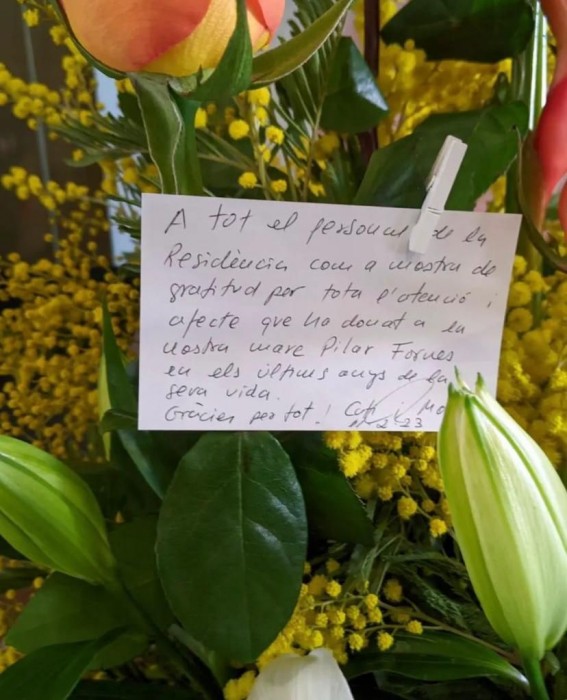 A tot el personal de la
Residència com a mostra de
gratitud per tota l'atenció i
afecte que ha donat a la
nostra mare Pilar Fornes
en els últims anys de la
seva vida.
Gràcies per tot! i
2-23